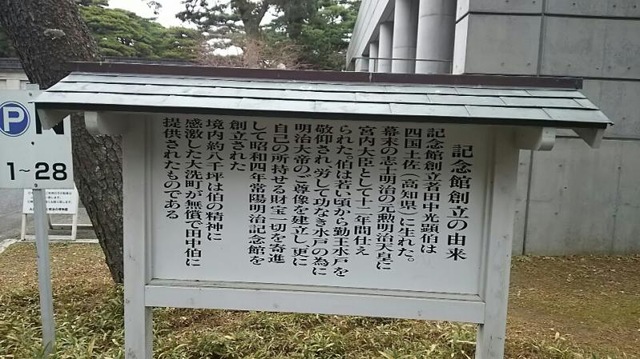 記念館創立の由来
記念館創立者田中光顕伯は
四国土佐(高知県)に生れた。
幕末の志士明治の元勲明治天皇に
宮内大臣として十一年間仕え
られた。伯は若い頃から勤王水戸を
敬仰され、労して功なき水戸の為に
明治大帝のご尊像を建立し、更に
自己の所持せる財宝一切を寄進
して昭和四年常陽明治記念館を
創立された
境内約八千坪は伯の精神に
感激した大洗町が無償で田中伯に
提供されたものである
P
1~28